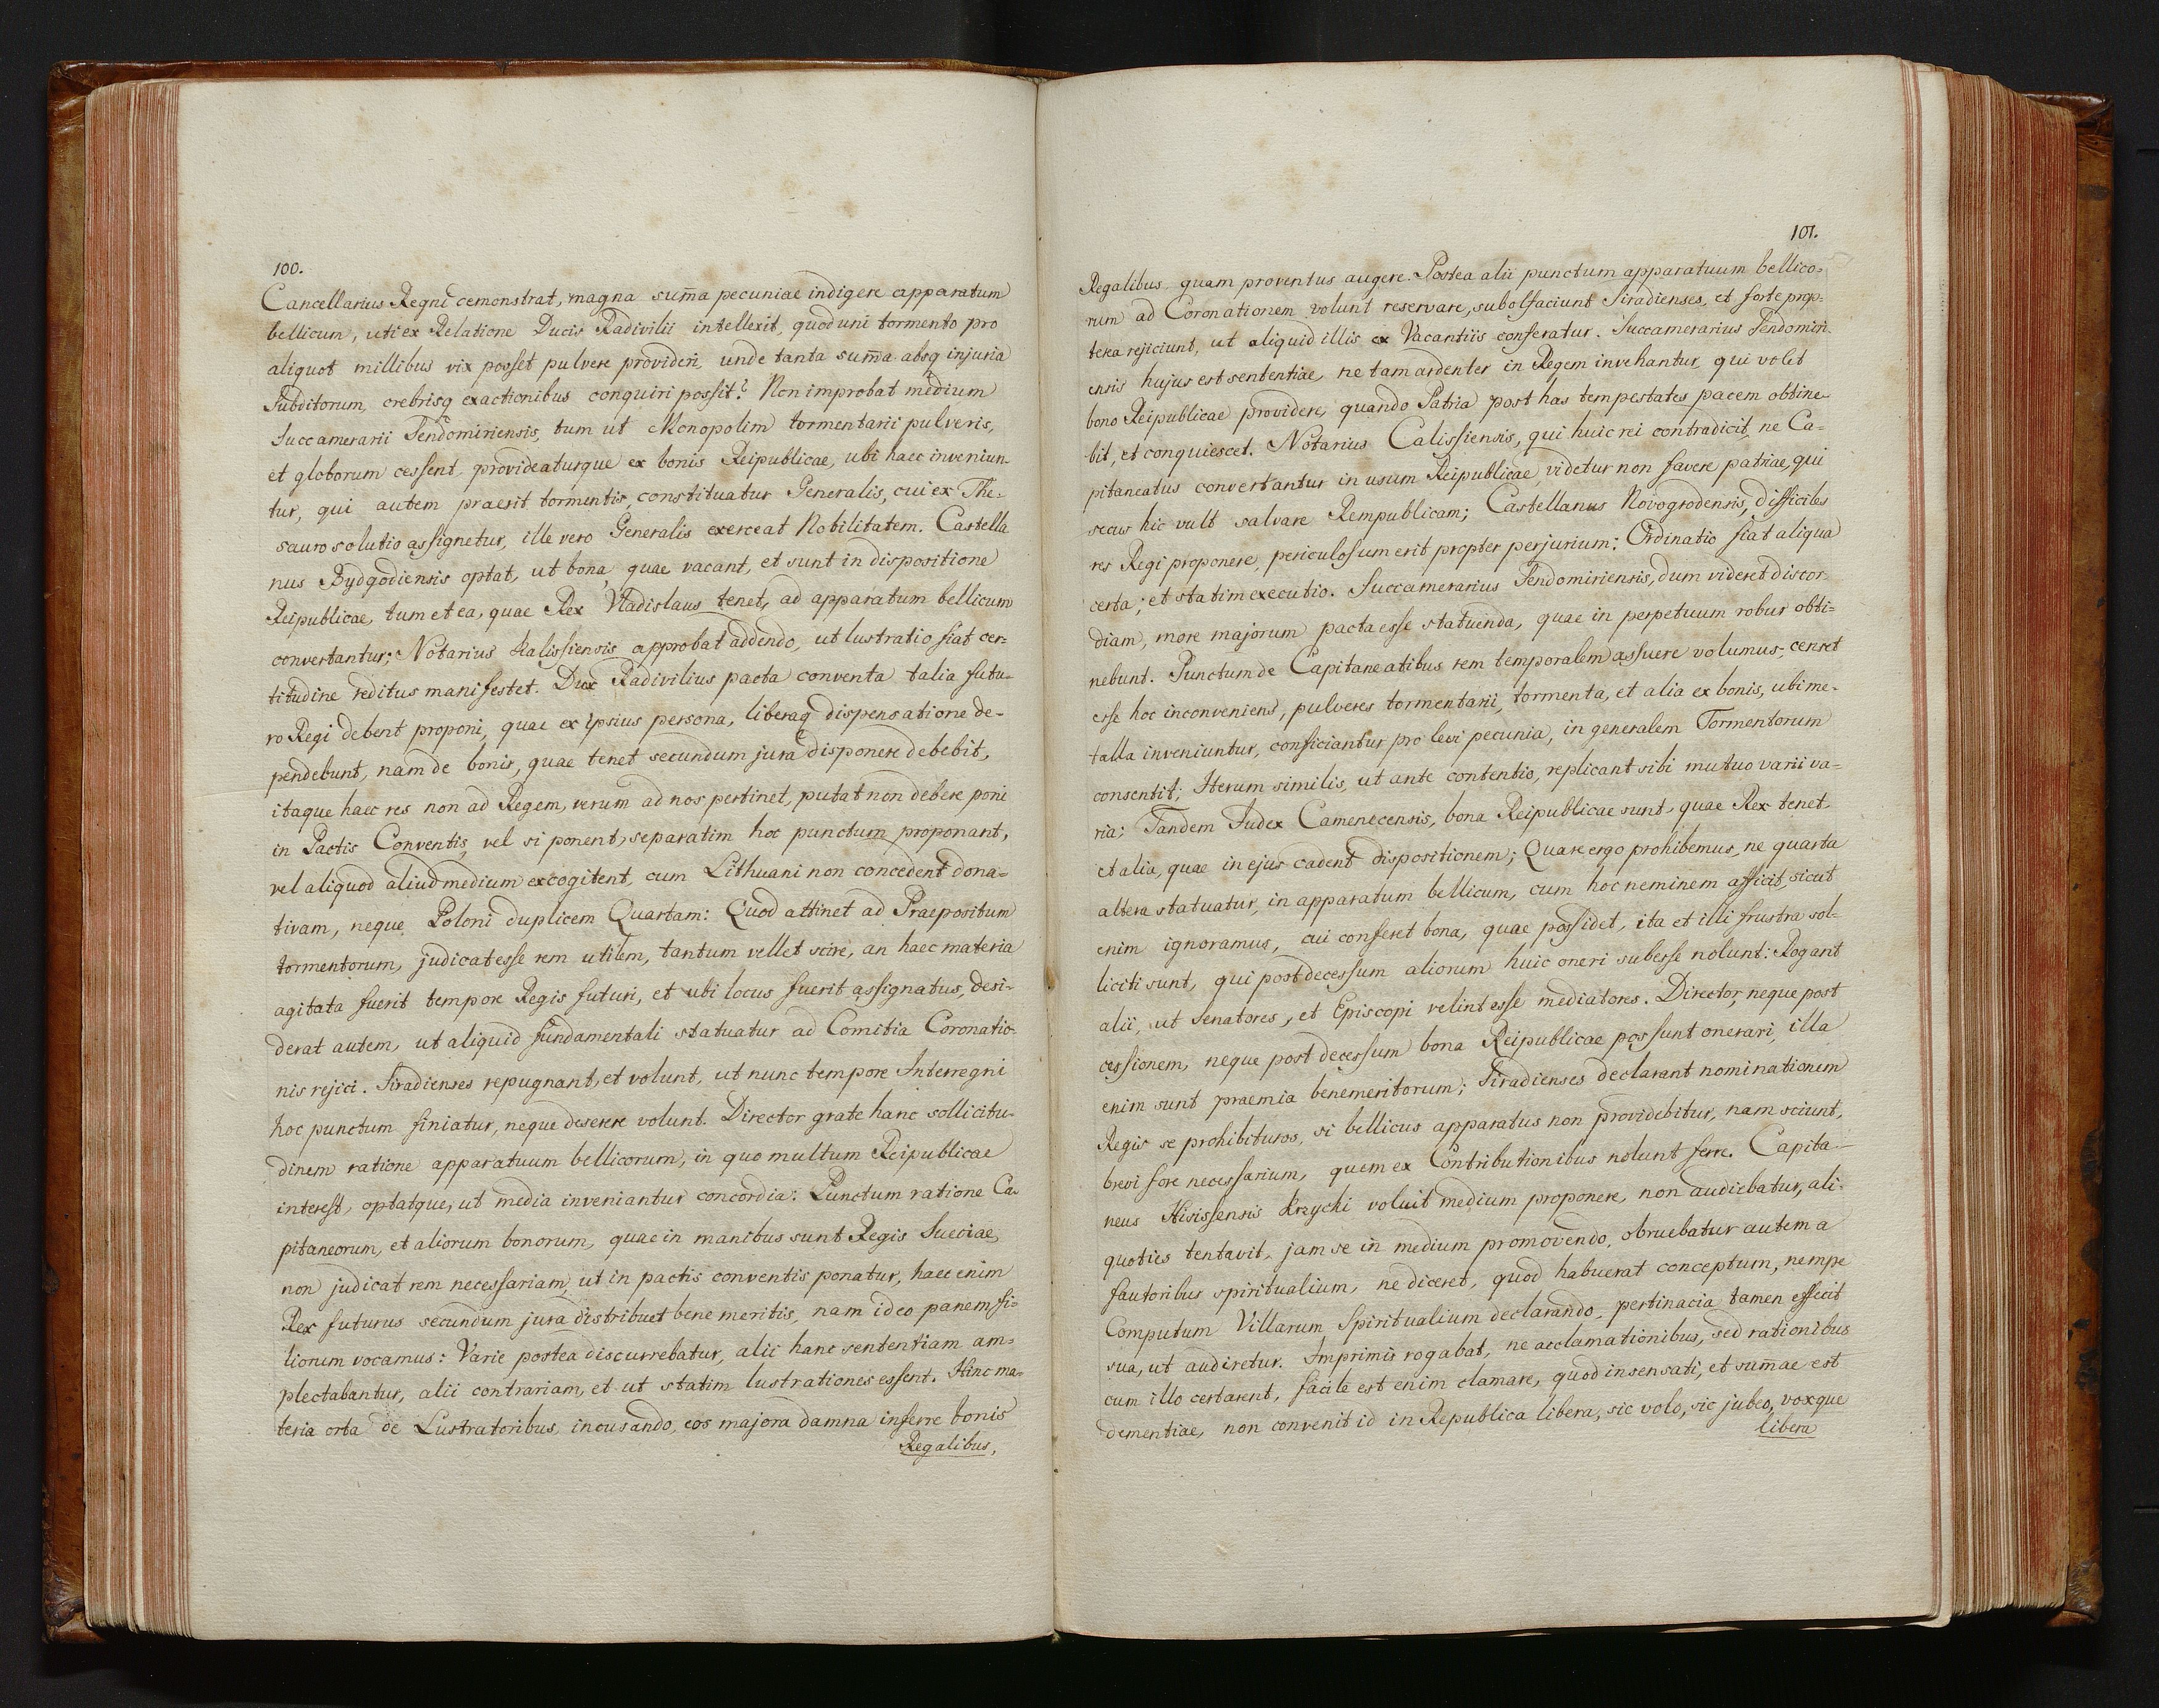 100.
Cancellarius Regni cemonstrat, magna suma pecuniae indigere apparatum
bellicum, uti ex Relatione Ducis Radivilii intellexit, quod uni tormento pro
aliquot millibus vix posset pulvere provideri, unde tanta suma absq injuria
Subditorum, crebrisq exactionibus conquiri possit? Non improbat medium
Succamerarii Sendomiriensis, tum ut Monopolim tormentarii pulveris,
et globorum cessent, provideaturque ex bonis Reipublicae, ubi haec inveniun-
tur, qui autem praerit tormentis, constituatur Generalis, cui ex The-
sauro solutio assignetur, ille vero Generalis exerceat Nobilitatem. Castella
nus Bydgodiensis optat, ut bona, quae vacant, et sunt in dispositione
Reipublicae, tum et ea, quae Rex Vladislaus tenet, ad apparatum bellicum
convertantur; Notarius Kalissiensis approbat addendo, ut lustratio fiat cer-
titudine reditus manifestet. Dux Radivilius pacta conventa talia futu-
ro Regi debent proponi, quae ex ipsius persona, liberaq dispensatione de-
pendebunt, nam de bonis, quae tenet secundum jura disponere debebit,
itaque haec res non ad Regem, verum ad nos pertinet, putat non debere poni
in Pactis Conventis, vel si ponent, separatim hoc punctum proponant,
vel aliquod aliud medium excogitent, cum Lithuani non concedent dona-
tivam, neque Poloni duplicem Quartam: Quod attinet ad Praepositum
tormentorum, judicat esse rem utilem, tantum vellet scire, an haec materia
agitata fuerit tempore Regis futuri, et ubi locus fuerit assignatus, desi-
derat autem, ut aliquid fundamentali statuatur ad Comitia Coronatio-
nis rejici. Siradienses repugnant, et volunt, ut nunc tempore Interregni
hoc punctum finiatur, neque deserere volunt. Director grate hanc sollicitu-
dinem ratione apparatuum bellicorum, in quo multum Reipublicae
interest, optatque, ut media inveniantur concordia: Punctum ratione Ca-
pitaneorum, et aliorum bonorum, quae in manibus sunt Regis Sueciae,
non judicat rem necessariam, ut in pactis conventis ponatur, haec enim
Rex futurus secundum jura distribuet bene meritis, nam ideo panem fi-
liorum vocamus: Varie postea discurrebatur, alii hanc sententiam am-
plectabantur, alii contrariam, et ut statim lustrationes essent. Hinc ma-
teria orta de Lustratoribus, incusando, eos majora damna inferre bonis
Regalibus,
101.
Regalibus quam proventus augere. Postea alii punctum apparatuum bellico-
rum ad Coronationem volunt reservare, subolfaciunt Siradienses, et forte prop-
terea rejiciunt, ut aliquid illis ex Vacantiis conferatur. Succamerarius Sendomiri-
ensis hujus est sententiae, ne tam ardenter in Regem invehantur, qui volet
bono Reipublicae providere, quando Patria post has tempestates pacem obtine-
bit, et conquiescet. Notarius Calissiensis, qui huic rei contradicit, ne Ca-
pitaneatus convertantur in usum Reipublicae, videtur non favere patriae, qui
secus hic vult salvare Rempublicam; Castellanus Novogrodensis, difficiles
res Regi proponere, periculosum erit propter perjurium; Ordinatio fiat aliqua
certa; et statim executio. Succamerarius Sendomiriensis, dum videret discor-
diam, more majorum pacta esse statuenda, quae in perpetuum robur obti-
nebunt. Punctum de Capitaneatibus rem temporalem assuere volumus, censet
esse hoc inconveniens, pulveres tormentarii, tormenta, et alia ex bonis, ubi me-
talla inveniuntur, conficiantur pro levi pecunia, in generalem Tormentorum
consentit; Iterum similis, ut ante contentio, replicant sibi mutuo varii va-
ria; Tandem Judex Camenecensis, bona Reipublicae sunt, quae Rex tenet,
et alia, quae in ejus cadent dispositionem; Quare ergo prohibemus, ne quarta
altera statuatur, in apparatum bellicum, cum hoc neminem afficit, sicut
enim ignoramus, cui conferet bona, quae possidet, ita et illi frustra sol-
liciti sunt, qui post decessum aliorum huic oneri subesse nolunt: Rogant
alii, ut Senatores, et Episcopi velint esse mediatores. Director, neque post
cessionem, neque post decessum bona Reipublicae possunt onerari, illa
enim sunt praemia benemeritorum; Siradienses declarant nominationem
Regis se prohibituros, si bellicus apparatus non providebitur, nam sciunt,
brevi fore necessarium, quem ex Contributionibus nolunt ferre. Capita-
neus Hisissensis Krzycki voluit medium proponere, non audiebatur, ali-
quoties tentavit, jam se in medium promovendo, obruebatur autem a
fautoribus spiritualium, ne diceret, quod habuerat conceptum, nempe
Computum Villarum Spiritualium declarando, pertinacia tamen effecit
sua, ut audiretur. Imprimis rogabat, ne acclamationibus, sed rationibus
cum illo certarent, facile est enim clamare, quod insensati, et sumae est
dementiae, non convenit id in Republica libera, sic volo, sic jubeo, voxque
libera